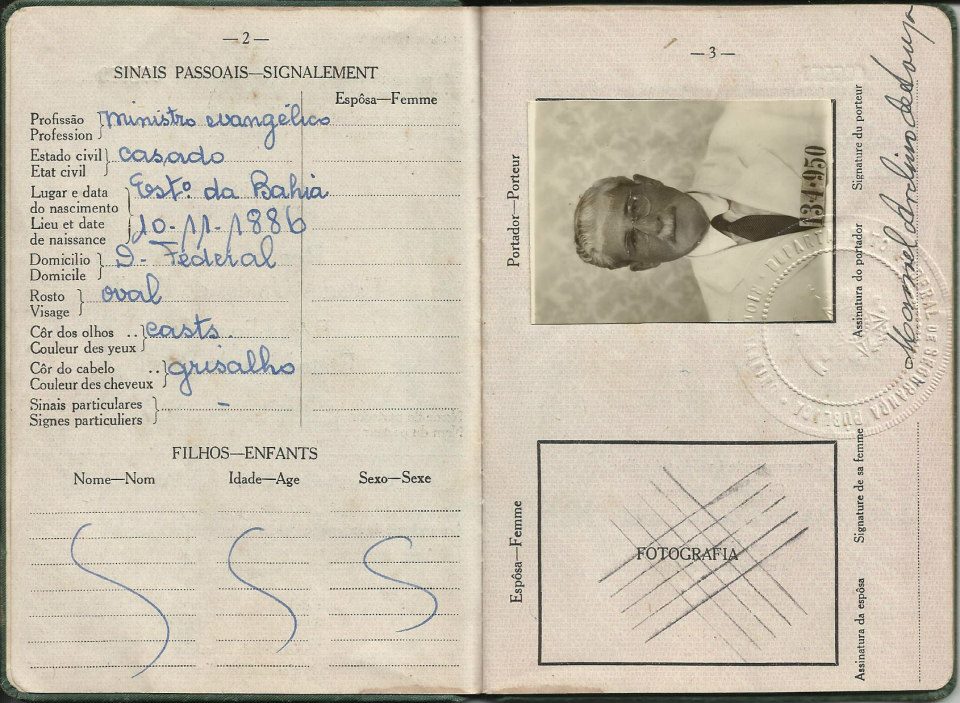 —2—
SINAIS PASSOAIS—SIGNALEMENT
Espôsa—Femme
Profissão
Profession
ministro evangélico
Estado civil
Etat civil
casado
Lugar e data
do nascimento
Lieu et date
de naissance
Estº. da Bahia
10-11-1886
Domicilio
Domicile
D. Federal
Rosto
Visage
oval
Côr dos olhos ..
Couleur des yeux
casts.
Côr do cabelo ..
Couleur des cheveux
grisalho
Sinais particulares
Signes particuliers
–
FILHOS—ENFANTS
Nome—Nom Idade—Age Sexo—Sexe
—3—
Portador—Porteur
13·1·950
Assinatura do portador Signature du porteur
Manoel Avelino de Souza
Espôsa—Femme
FOTOGRAFIA
Assinatura da espôsa Signature de sa femme
DE SEGURANÇA PUBLICA